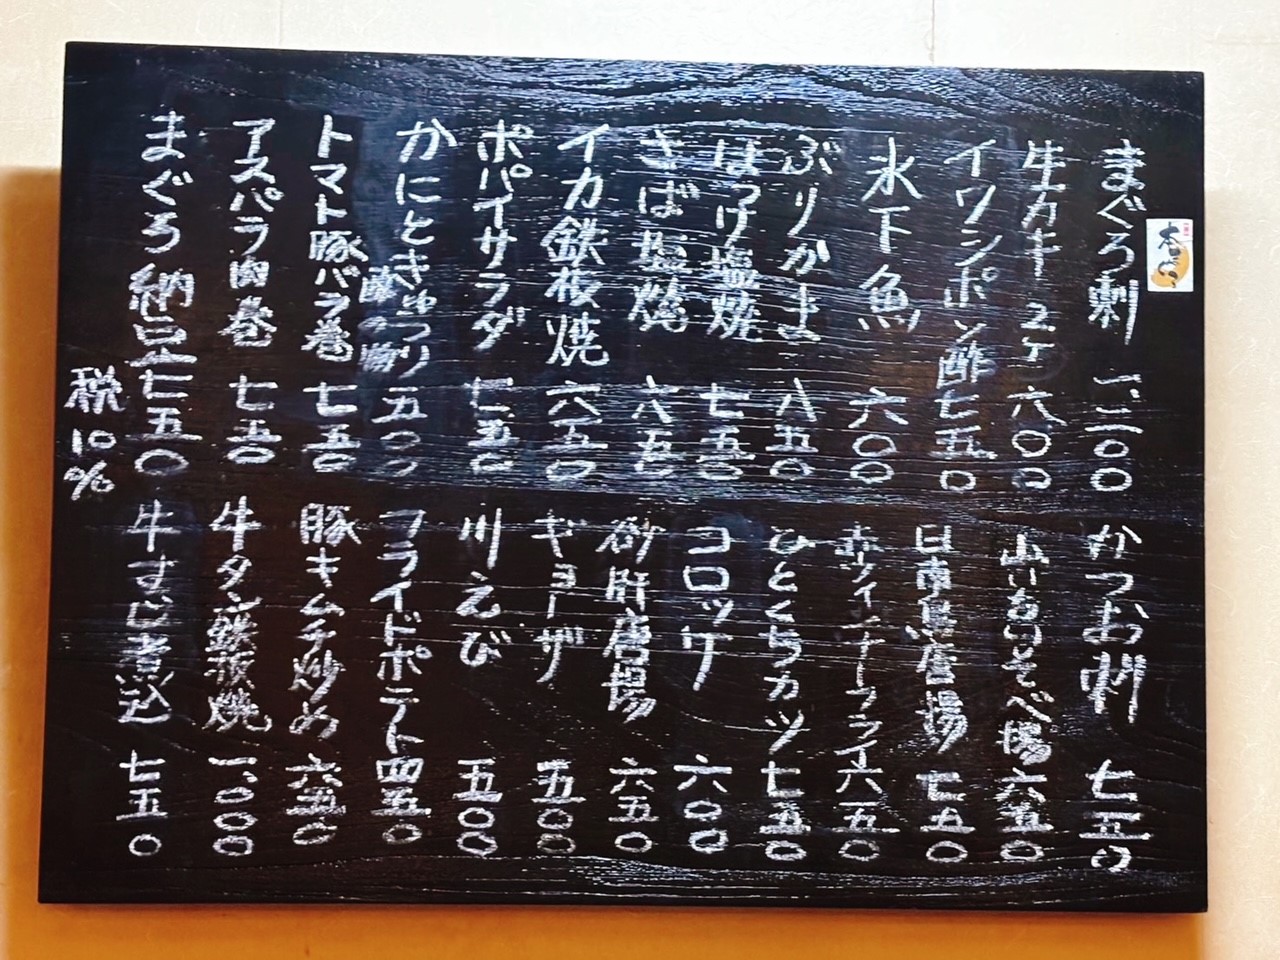 まぐろ刺 一、二〇〇
生カキ 2ケ 六〇〇
イワシポン酢 七五〇
氷下魚 六〇〇
ぶりかま 八五〇
ほっけ塩焼 七五〇
さば塩焼 六五〇
イカ鉄板焼 六五〇
ポパイサラダ 七五〇
かにときゅうり 酢の物 五〇〇
トマト豚バラ巻 七五〇
アスパラ肉巻 七五〇
まぐろ納豆 七五〇
税10%
かつお刺 七五〇
山いものいそべ揚 六五〇
日南鳥唐揚 七五〇
赤ウィンナーフライ 六五〇
ひとくちカツ 七五〇
コロッケ 六〇〇
砂肝唐揚 六五〇
ギョーザ 五〇〇
川えび 五〇〇
フライドポテト 四五〇
豚キムチ炒め 六五〇
牛タン鉄板焼 一、〇〇〇
牛すじ煮込 七五〇